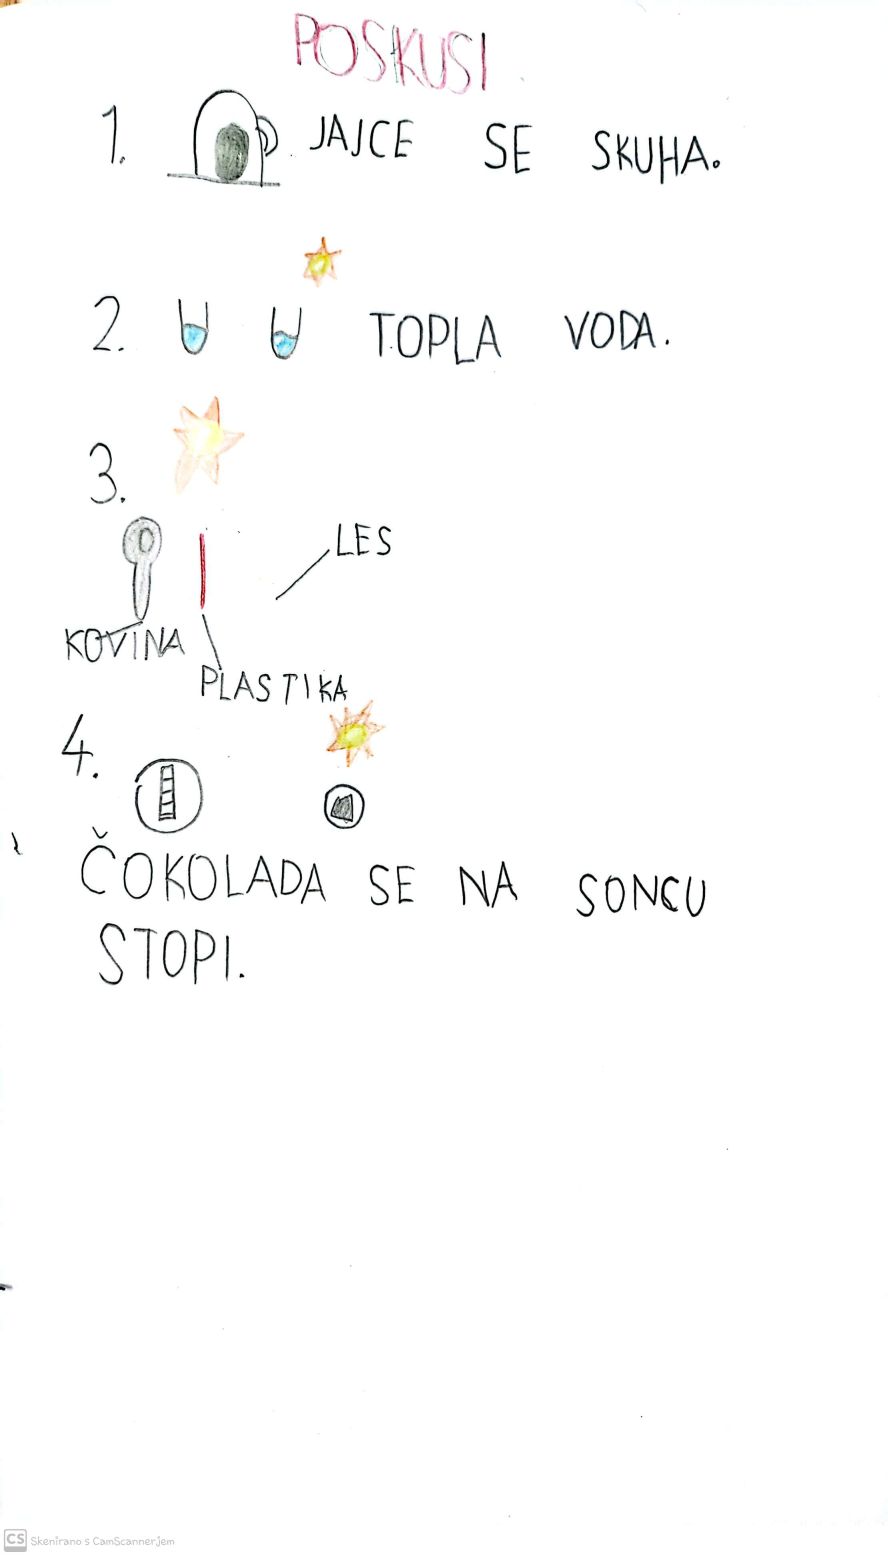 POSKUSI
1. JAJCE SE SKUHA.
2. TOPLA VODA.
3.
LES
KOVINA
PLASTIKA
4.
ČOKOLADA SE NA SONCU
STOPI.
CS Skenirano s CamScannerjem